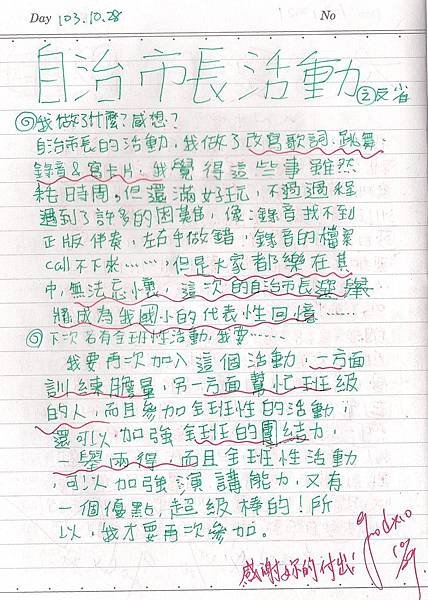 Day 103.10.28 No
自治市長活動之反省
我做了什麼?感想?
自治市長的活動,我做了改寫歌詞、跳舞、
錄音&寫卡片,我覺得這些事雖然
耗時間,但還滿好玩,不過過程
遇到了許多的困難,像:錄音找不到
正版伴奏,左右手做錯,錄音的檔案
call不下來……,但是大家都樂在其
中,無法忘懷,這次的自治市長選舉
將成為我國小的代表性回憶……
下次若有全班性活動,我要……
我要再次加入這個活動,一方面
訓練膽量,另一方面幫忙班級
的人,而且參加全班性的活動;
還可以加強全班的團結力,
一舉兩得,而且全班性活動
,可以加強演講能力,又有
一個優點,超級棒的!所
以,我才要再次參加。
感謝妳的付出!
10/29